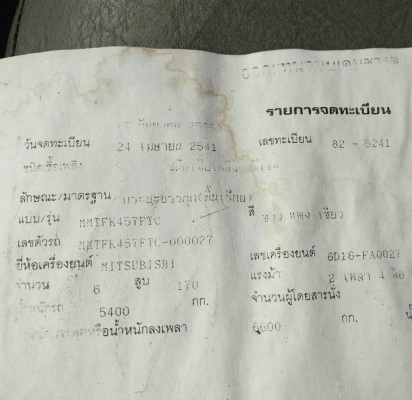 รายการจดทะเบียน
วันจดทะเบียน 24 เมษายน 2541 เลขทะเบียน 82 - 5241
ชนิดเชื้อเพลิง
ลักษณะ/มาตรฐาน กระบะบรรทุก(พื้นเรียบ)
แบบ/รุ่น MMTFK457FTC สี ขาว แดง เขียว
เลขตัวรถ MMTFK457FTC-000027
ยี่ห้อเครื่องยนต์ MITSUBISHI เลขเครื่องยนต์ 6D16-FA0027
จำนวน 6 สูบ 170 แรงม้า 2 เพลา 4 ล้อ
น้ำหนักรถ 5400 กก. จำนวนผู้โดยสารนั่ง
หรือน้ำหนักลงเพลา 6600 กก.